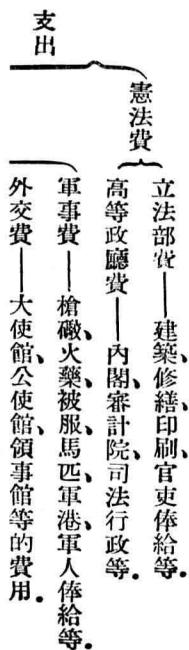 支出
憲法費
立法部費——建築、修繕、印刷、官吏俸給等.
高等政廳費——內閣、審計院、司法行政等.
軍事費——槍礮、火藥、被服、馬匹、軍港、軍人俸給等.
外交費——大使館、公使館、領事館等的費用.